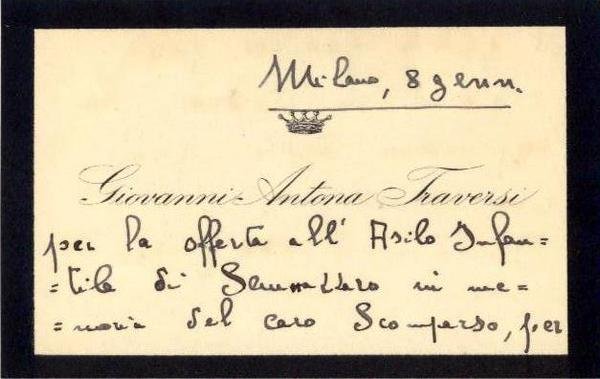 Milano, 8 genn.
Giovanni Antona Traversi
per la offerta all' Asilo Infan=
=tile di Sannazzaro in me=
=moria del caro Scomparso, per